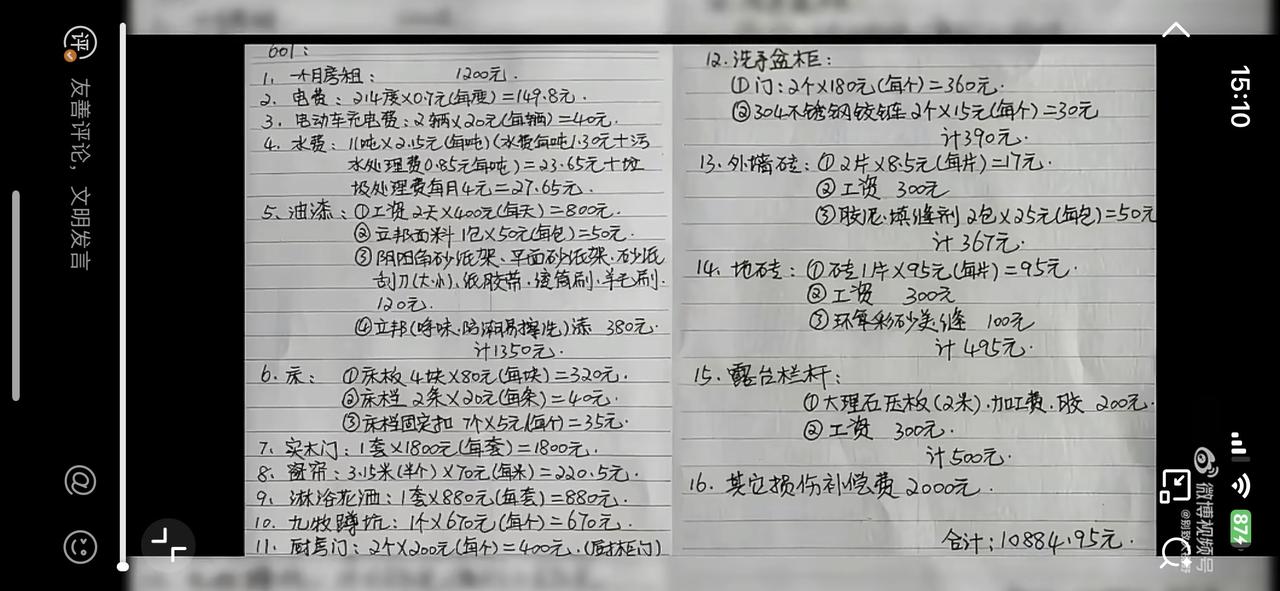 601:
1. 一个月房租: 1200元.
2. 电费: 214度×0.7元(每度)=149.8元.
3. 电动车充电费: 2辆×20元(每辆)=40元.
4. 水费: 11吨×2.15元(每吨)(水费每吨1.30元+污
水处理费0.85元每吨)=23.65元+垃
圾处理费每月4元=27.65元.
5. 油漆: ①工资 2天×400元(每天)=800元.
②立邦面料 1包×50元(每包)=50元.
③阴阳角砂纸架、平面砂纸架、砂纸
刮刀(大小)、纸胶带、滚筒刷、羊毛刷.
120元.
④立邦(净味, 易擦洗)漆 380元.
计1350元.
6. 床: ①床板 4块×80元(每块)=320元.
②床档 2条×20元(每条)=40元.
③床档固定扣 7个×5元(每个)=35元.
7. 实木门: 1套×1800元(每套)=1800元.
8. 窗帘: 3.15米(半个)×70元(每米)=220.5元.
9. 淋浴花洒: 1套×880元(每套)=880元.
10. 九牧蹲坑: 1个×670元(每个)=670元.
11. 厨房门: 2个×200元(每个)=400元.(厨柜门)
12. 洗手盆柜:
①门: 2个×180元(每个)=360元.
②304不锈钢铰链 2个×15元(每个)=30元
计390元.
13. 外墙砖: ①2片×8.5元(每片)=17元.
②工资 300元
③胶泥、填缝剂 2包×25元(每包)=50元
计367元.
14. 地砖: ①砖1片×95元(每片)=95元.
②工资 300元
③环氧彩砂美缝 100元
计495元.
15. 露台栏杆:
①大理石压板(2米)、加工费、胶 200元.
②工资 300元.
计500元.
16. 其它损伤补偿费 2000元.
合计: 10884.95元.
评
友善评论,文明发言
@
15:10
87
微博视频号